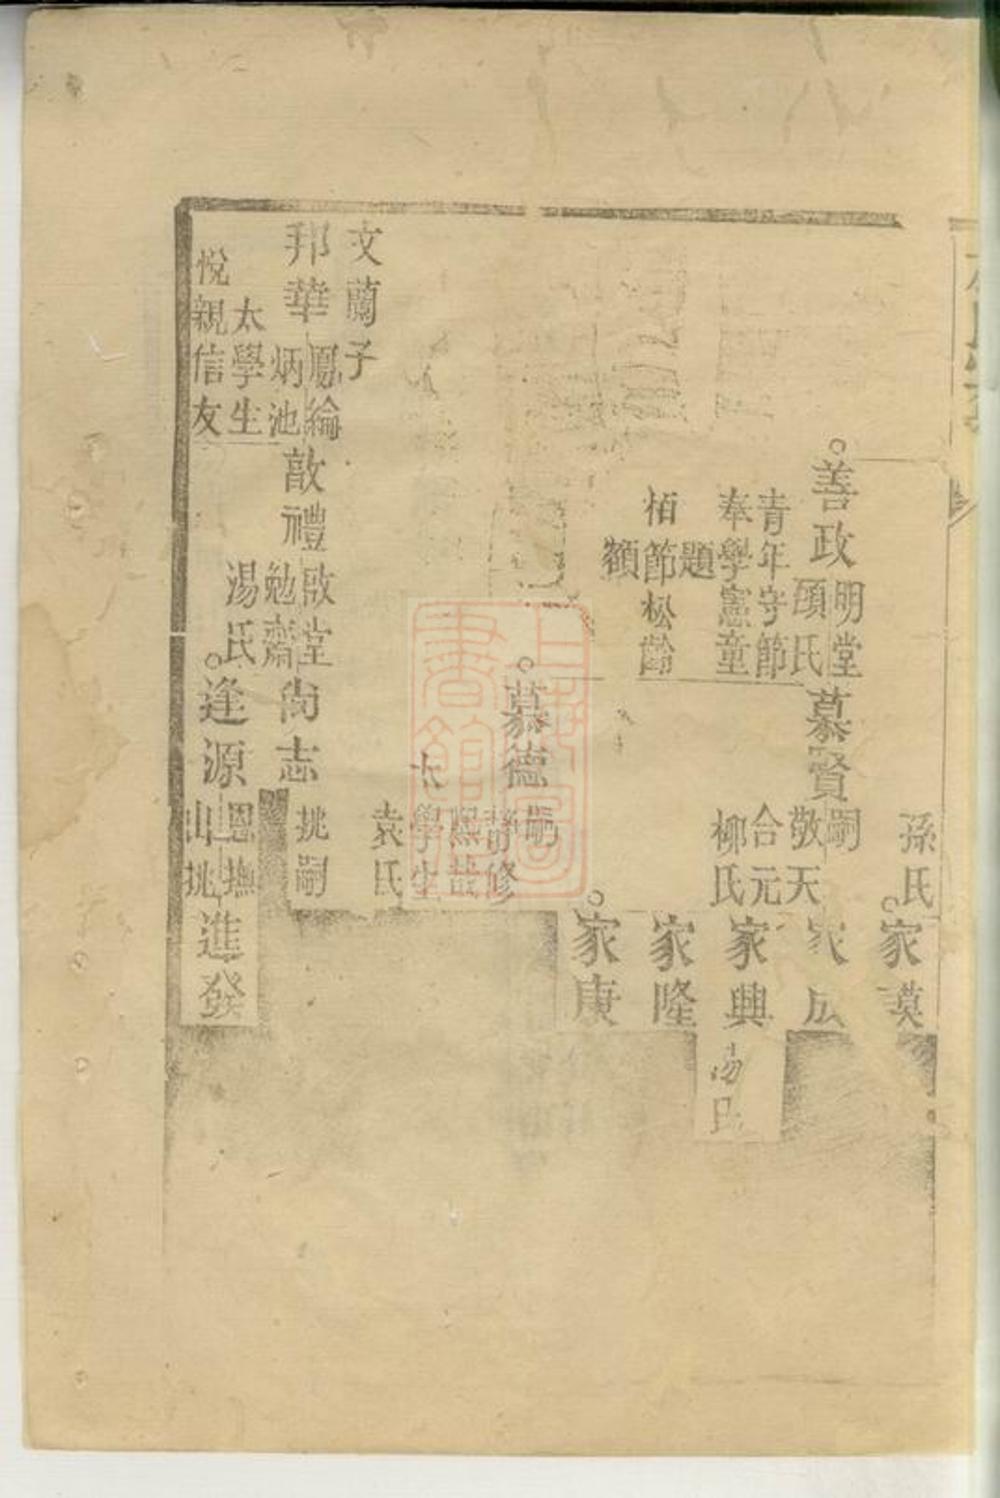 孫氏
家謨
善政
明堂
頋氏
青年守節
奉學憲童
題
栢節松齡
額
慕賢
嗣
敬天
合元
柳氏
家興
湯氏
家隆
家康
慕德
嗣
靜修
熙哉
太學生
袁氏
文蘭子
邦華
鳳綸
炳池
太學生
悅親信友
敿禮
啟堂
勉齋
湯氏
尙志
挑嗣
逢源
恩撫
山挑
進發
上海圖書館藏